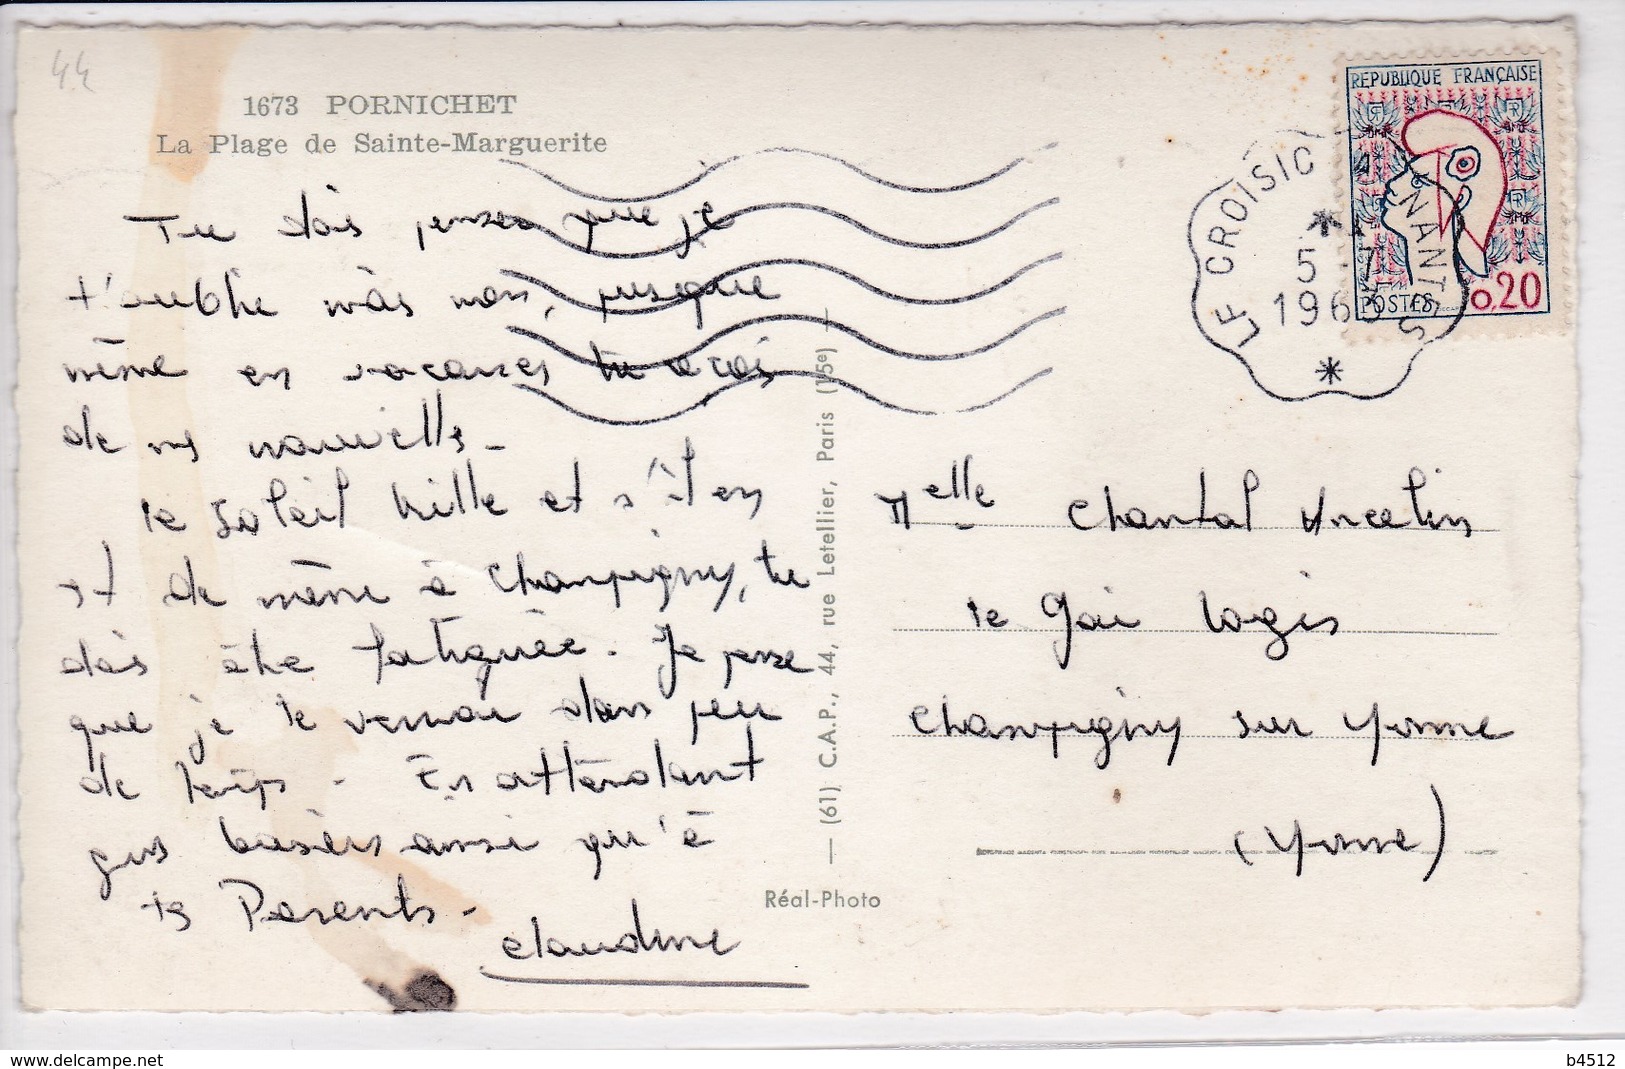 44
1673 PORNICHET
La Plage de Sainte-Marguerite
REPUBLIQUE FRANÇAISE
POSTES 0,20
LE CROISIC A NANTES
5 - 7
196
Tu dois penser que je
t'oublie mais non, puisque
même en vacances tu reçois
de mes nouvelles -
le soleil brille et s'il en
est de même à Champigny, tu
dois être fatiguée. Je pense
que je te verrai dans peu
de temps - En attendant
gros baisers ainsi qu'à
tes Parents -
Claudine
Melle Chantal Ancelin
le Gai logis
Champigny sur Yonne
(Yonne)
— (61) C.A.P., 44, rue Letellier, Paris (15e) —
Réal-Photo
www.delcampe.net
b4512